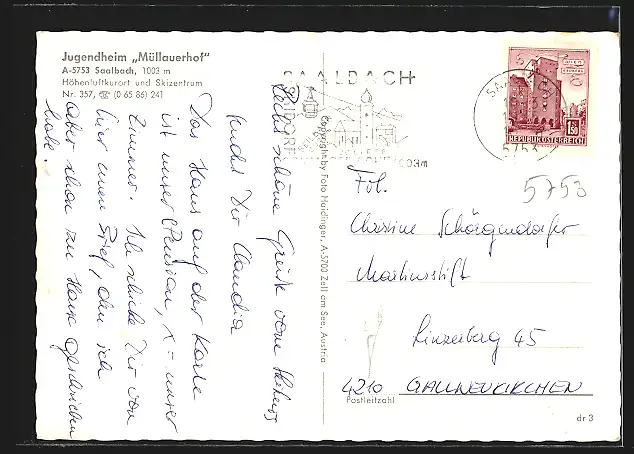 Jugendheim „Müllauerhof"
A-5753 Saalbach, 1003 m
Höhenluftkurort und Skizentrum
Nr. 357, ☎ (0 65 86) 241
SAALBACH
SKIDORF
1003m
5753
REPUBLIK ÖSTERREICH
1.50
5753
Recht schöne Grüße vom
sendet Dir Claudia
Das Haus auf der Karte
ist unser Pension, x = unser
Zimmer. Ich schicke Dir von
hier einen Brief, den ich
aber schon zu Hause geschrieben
habe.
Copyright by Foto Haidinger, A-5700 Zell am See, Austria
Frl.
Christine Schörgendorfer
Martinsstift
Linzerberg 45
4210 GALLNEUKIRCHEN
Postleitzahl
dr 3